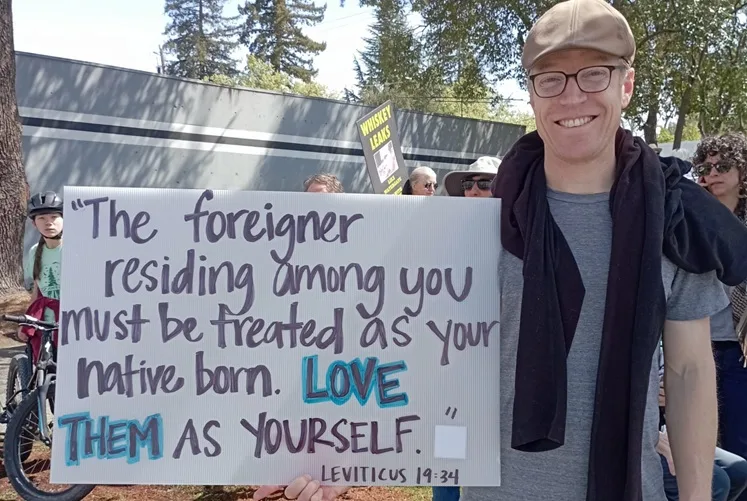 WHISKEY
LEAKS
"The foreigner
residing among you
must be treated as your
native born. LOVE
THEM AS YOURSELF."
LEVITICUS 19:34